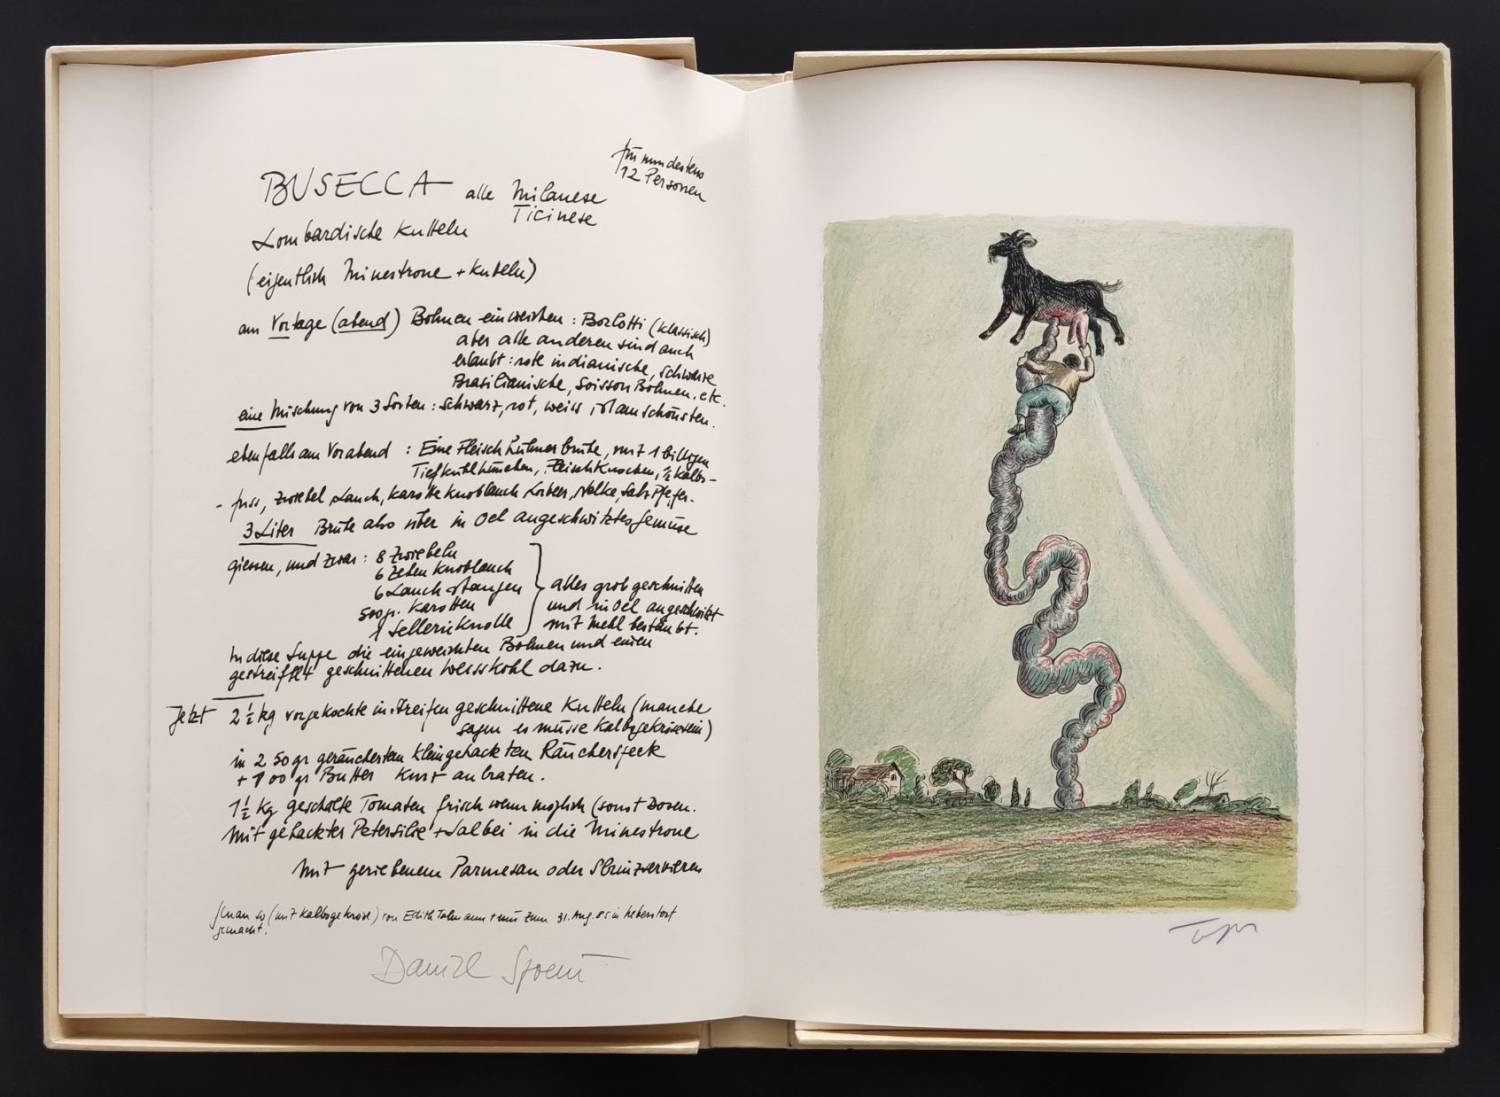 für mindestens
12 Personen
BUSECCA alle Milanese
Ticinese
Lombardische Kutteln
(eigentlich Minestrone + Kutteln)
am Vortage (abend) Bohnen einweichen : Borlotti (klassisch)
aber alle anderen sind auch
erlaubt : rote indianische, schwarze
Brasilianische, Soisson Bohnen, etc.
eine Mischung von 3 Sorten : schwarz, rot, weiss, am schönsten.
ebenfalls am Vorabend : Eine Fleisch Hühner brühe, mit 1 billigen
Tiefkühlhünchen, Fleischknochen, ½ Kalbs-
- fuss, zwiebel Lauch, karotte knoblauch Lorbeer, Nelke, Salz Pfeffer.
3 Liter Brühe also über in Oel angeschwitztes Gemüse
giessen, und zwar : 8 Zwiebeln
6 Zehen Knoblauch
6 Lauch stangen
500 gr. Karotten
1 Sellerieknolle
alles grob geschnitten
und in Oel angeschwitzt
mit Mehl bestäubt.
In diese Suppe die eingeweichten Bohnen und einen
gestreifelt geschnittenen Weisskohl dazu.
Jetzt 2 ½ kg vorgekochte in Streifen geschnittene Kutteln (manche
sagen es müsse Kalbsgekröse sein)
in 250 gr geräuchertem kleingehackten Räucherspeck
+ 100 gr Butter kurz anbraten.
1 ½ kg geschälte Tomaten frisch wenn möglich (sonst Dosen.
Mit gehackter Petersilie + Salbei in die Minestrone
Mit geriebenem Parmesan oder Sbrinz servieren
so (mit Kalbsgekröse) von Edith Talmann + mir zum 31. Aug. 85 in
gemacht.
Daniel Spoerri
Topor